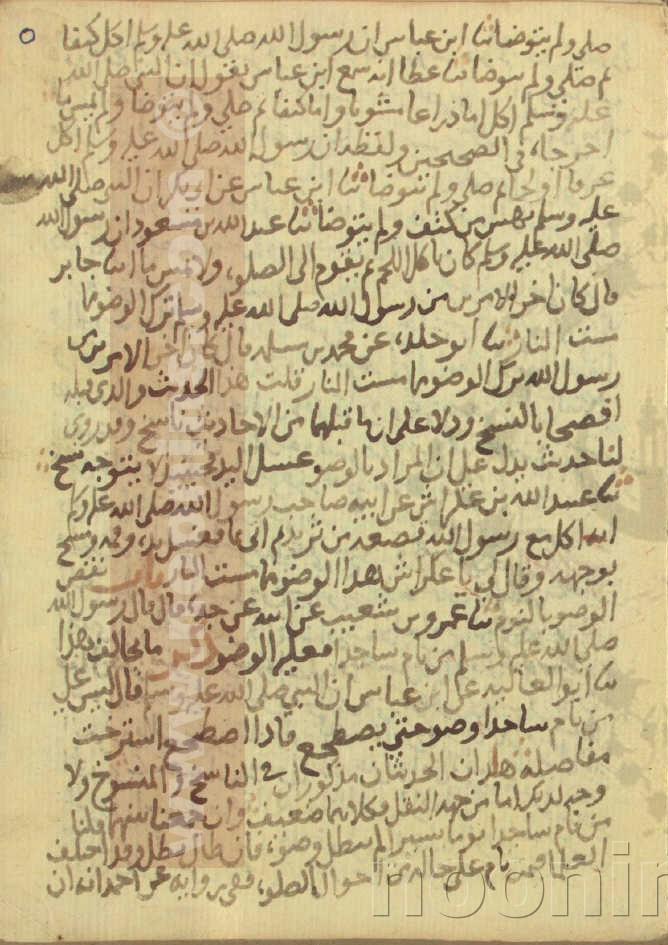 صلى ولم يتوضا ثنا ابن عباس ان رسول الله صلى الله عليه وسلم اكل كتفا
ثم صلى ولم يتوضا ثنا عطا انه سمع ابن عباس يقول ان النبي صلى الله
عليه وسلم اكل اما ذراعا مشويا واما كتفا ثم صلى ولم يتوضا ولم يمس ما
اخرجاه في الصحيحين ولفظه ان رسول الله صلى الله عليه وسلم اكل
عرقا او لحما ثم صلى ولم يتوضا ثنا ابن عباس عن ان النبي صلى الله
عليه وسلم نهس من كتف ولم يتوضا ثنا عبد الله بن مسعود ان رسول الله
صلى الله عليه وسلم كان ياكل اللحم ثم يقوم الى الصلوة ولا يمس ما ثنا جابر
قال كان اخر الامرين من رسول الله صلى الله عليه وسلم ترك الوضو مما
مست النار ثنا ابو خلدة عن محمد بن مسلمة قال كان اخر الامرين من
رسول الله ترك الوضو مما مست النار قلت هذا الحديث والذي قبله
افصحا بالنسخ ودلا على ان ما قبلهما من الاحاديث ناسخ وقد روى
لنا حديث يدل على ان المراد بالوضو غسل اليد فحينئذ لا يتوجه نسخ
ثنا عبيد الله بن عكراش عن ابيه صاحب رسول الله صلى الله عليه وسلم
انه اكل مع رسول الله قصعة من ثريد ثم اتى بما فغسل يده وفمه ومسح
بوجهه وقال لي يا عكراش هذا الوضو مما مست النار باب نقض
الوضو بالنوم ثنا عمرو بن شعيب عن ابيه عن جده قال قال رسول الله
صلى الله عليه وسلم من نام ساجدا فعليه الوضو ما يخالف هذا
ثنا ابو العالية عن ابن عباس ان النبي صلى الله عليه وسلم قال ليس على
من نام ساجدا وضو حتى يضطجع فاذا اضطجع استرخت
مفاصله هذان الحديثان مذكوران في الناسخ والمنسوخ ولا
وجه لذكرهما من جهة النقل فكلاهما ضعيف وان جمعنا بينهما قلنا
من نام ساجدا نوما يسيرا لم يبطل وضوه فان طال بطل وقد اختلف
العلما فيمن نام على حالة من احوال الصلوة ففي رواية عن احمد انه ان
noonin